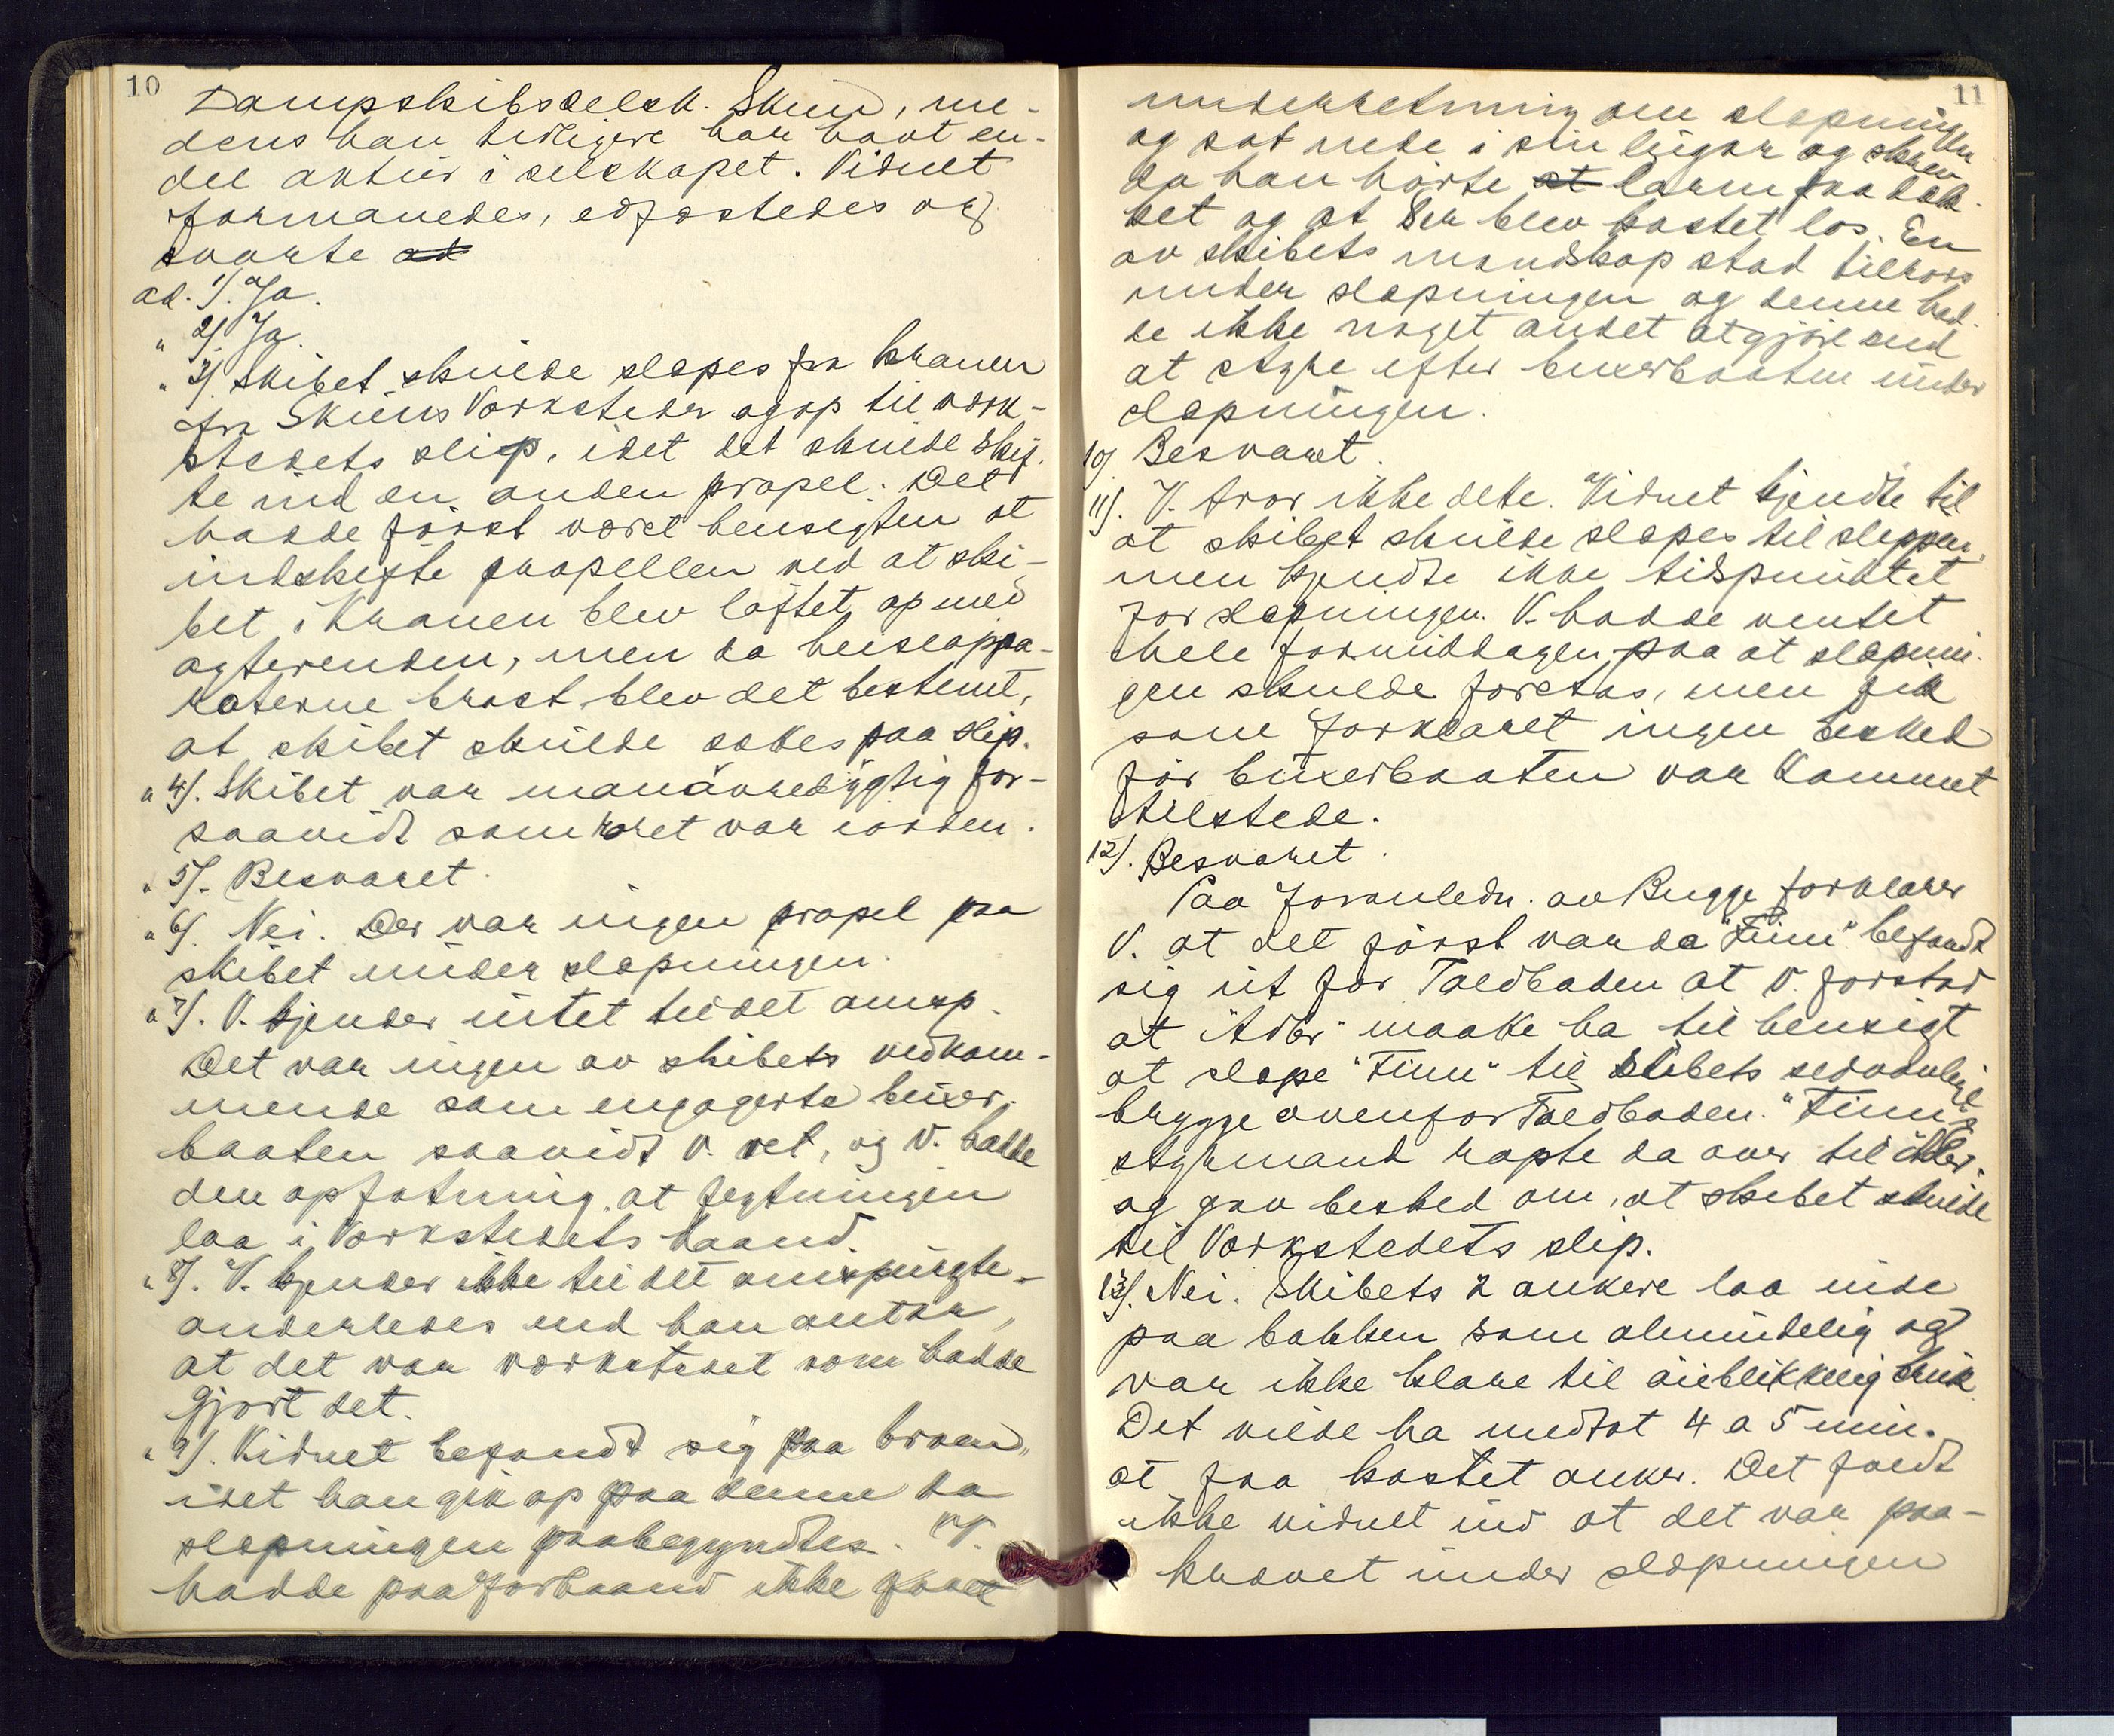 10
Dampskibsselsk. Skien, me-
dens han tidligere har havt en-
del aktier i selskapet. Vidnet
formanedes, edfæstedes og
svarte at
ad. 1). Ja.
" 2). Ja.
" 3). Skibet skulde slæpes fra kranen
fra Skiens Værksteder og op til værk-
stedets slip, idet det skulde skif-
te ind en anden propel. Det
hadde først været hensigten at
indskifte propellen ved at ski-
bet i kranen blev løftet op med
agterenden, men da heiseappa-
raterne brast blev det bestemt,
at skibet skulde sættes paa slip.
" 4). Skibet var manøvredygtig for-
saavidt som roret var iorden.
" 5). Besvaret.
" 6). Nei. Der var ingen propel paa
skibet under slæpningen.
" 7). V. kjender intet til det omsp.
Det var ingen av skibets vedkom-
mende som engagerte buxer-
baaten saavidt V. vet, og V. hadde
den opfatning, at fragtningen
laa i Værkstedets haand.
" 8). V. kjender ikke til det omspurgte
anderledes end han antar,
at det var værkstedet som hadde
gjort det.
" 9). Vidnet befandt sig paa broen,
idet han gik op paa denne da
slæpningen paabegyndtes. V.
hadde paa forhaand ikke faaet
11
underretning om slæpningen
og sat nede i sin lugar og skrev
da han hørte at larm paa dæk-
ket og at der blev kastet los. En
av skibets mandskap stod tilrors
under slæpningen og denne had-
de ikke noget andet at gjøre end
at styre efter buxerbaaten under
slæpningen.
10) Besvaret.
11). V. tror ikke dette. Vidnet kjendte til
at skibet skulde slæpes til slippen,
men kjendte ikke tidspunktet
for slæpningen. V. hadde ventet
hele formiddagen paa at slæpnin-
gen skulde foretas, men fik
som forklaret ingen besked
før buxerbaaten var kommet
tilstede.
12). Besvaret.
Paa foranledn. av Bugge forklarer
V. at det først var da "Finn" befandt
sig ut for Toldboden at V. forstod
at "Adler" maatte ha til hensigt
at slæpe "Finn" til skibets sedvanlige
brygge ovenfor Toldboden. "Finn"s
styrmand ropte da over til "Adler"
og gav besked om, at skibet skulde
til Værkstedets slip.
13). Nei. Skibets 2 ankere laa inde
paa bakken som almindelig og
var ikke klare til øieblikkelig bruk.
Det vilde ha medtat 4 a 5 min.
at faa kastet anker. Det faldt
ikke vidnet ind at det var paa-
krævet under slæpningen